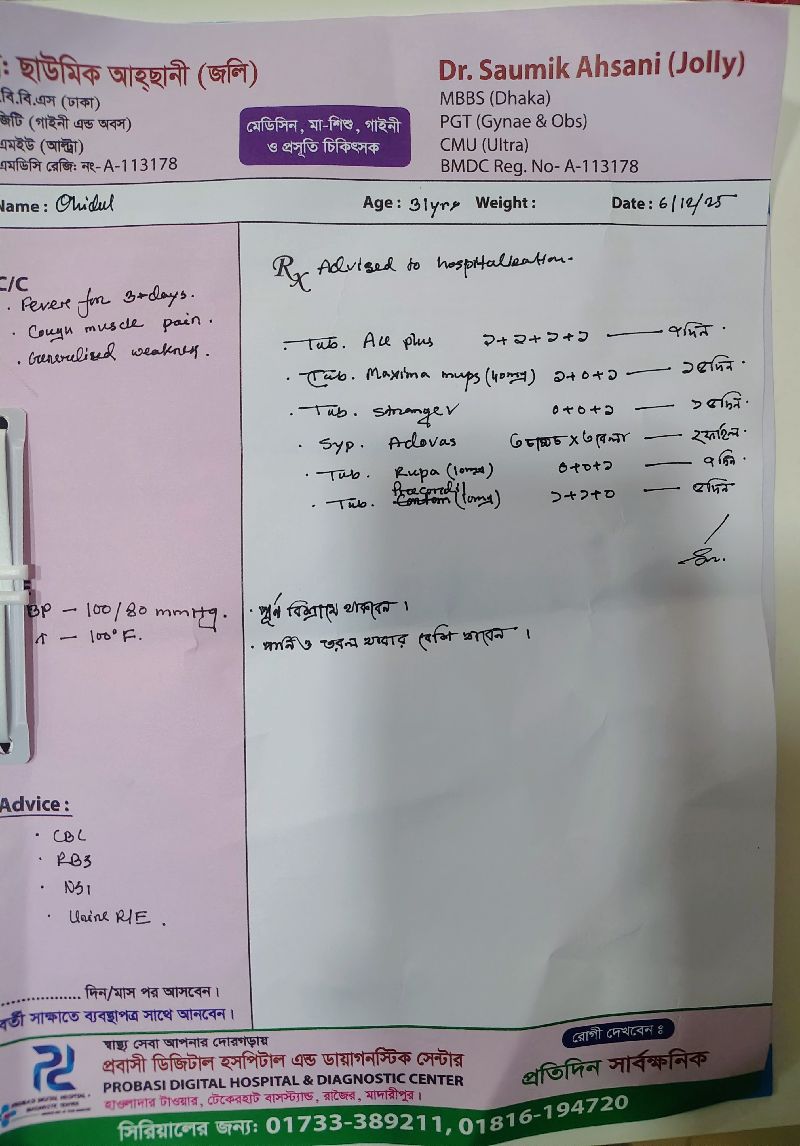 : ছাউমিক আহ্‌ছানী (জলি)
.বি.বি.এস (ঢাকা)
জিটি (গাইনী এন্ড অবস)
এমইউ (আল্ট্রা)
এমডিসি রেজি: নং- A-113178
মেডিসিন, মা-শিশু, গাইনী
ও প্রসূতি চিকিৎসক
Dr. Saumik Ahsani (Jolly)
MBBS (Dhaka)
PGT (Gynae & Obs)
CMU (Ultra)
BMDC Reg. No- A-113178
Name : Ohidul Age : 31yrs Weight : Date : 6/12/25
C/C
. Fever for 3+days.
. Cough muscle pain.
. Generalised weakness.
BP — 100/80 mmHg.
T — 100°F.
Advice :
· CBC
· RBS
· NS1
· Urine R/E.
Rx Advised to hospitalisation.
. Tab. Ace plus ১+১+১+১ — ৭দিন.
. Tab. Maxima mups (40mg) ১+০+১ — ১৫দিন.
. Tab. ০+০+১ — ১৫দিন.
. Syp. Adovas ৩চামচ x ৩বেলা —
. Tab. Rupa (10mg) ০+০+১ — ৭দিন.
. Tab. (10mg) ১+১+০ — ৫দিন
. পূর্ন বিশ্রামে থাকবেন।
. পানি ও তরল খাবার বেশি খাবেন।
.................. দিন/মাস পর আসবেন।
বর্তী সাক্ষাতে ব্যবস্থাপত্র সাথে আনবেন।
স্বাস্থ্য সেবা আপনার দোরগড়ায়
প্রবাসী ডিজিটাল হসপিটাল এন্ড ডায়াগনস্টিক সেন্টার
PROBASI DIGITAL HOSPITAL & DIAGNOSTIC CENTER
হাওলাদার টাওয়ার, টেকেরহাট বাসস্ট্যান্ড, রাজৈর, মাদারীপুর।
রোগী দেখবেন :
প্রতিদিন সার্বক্ষনিক
সিরিয়ালের জন্য: 01733-389211, 01816-194720